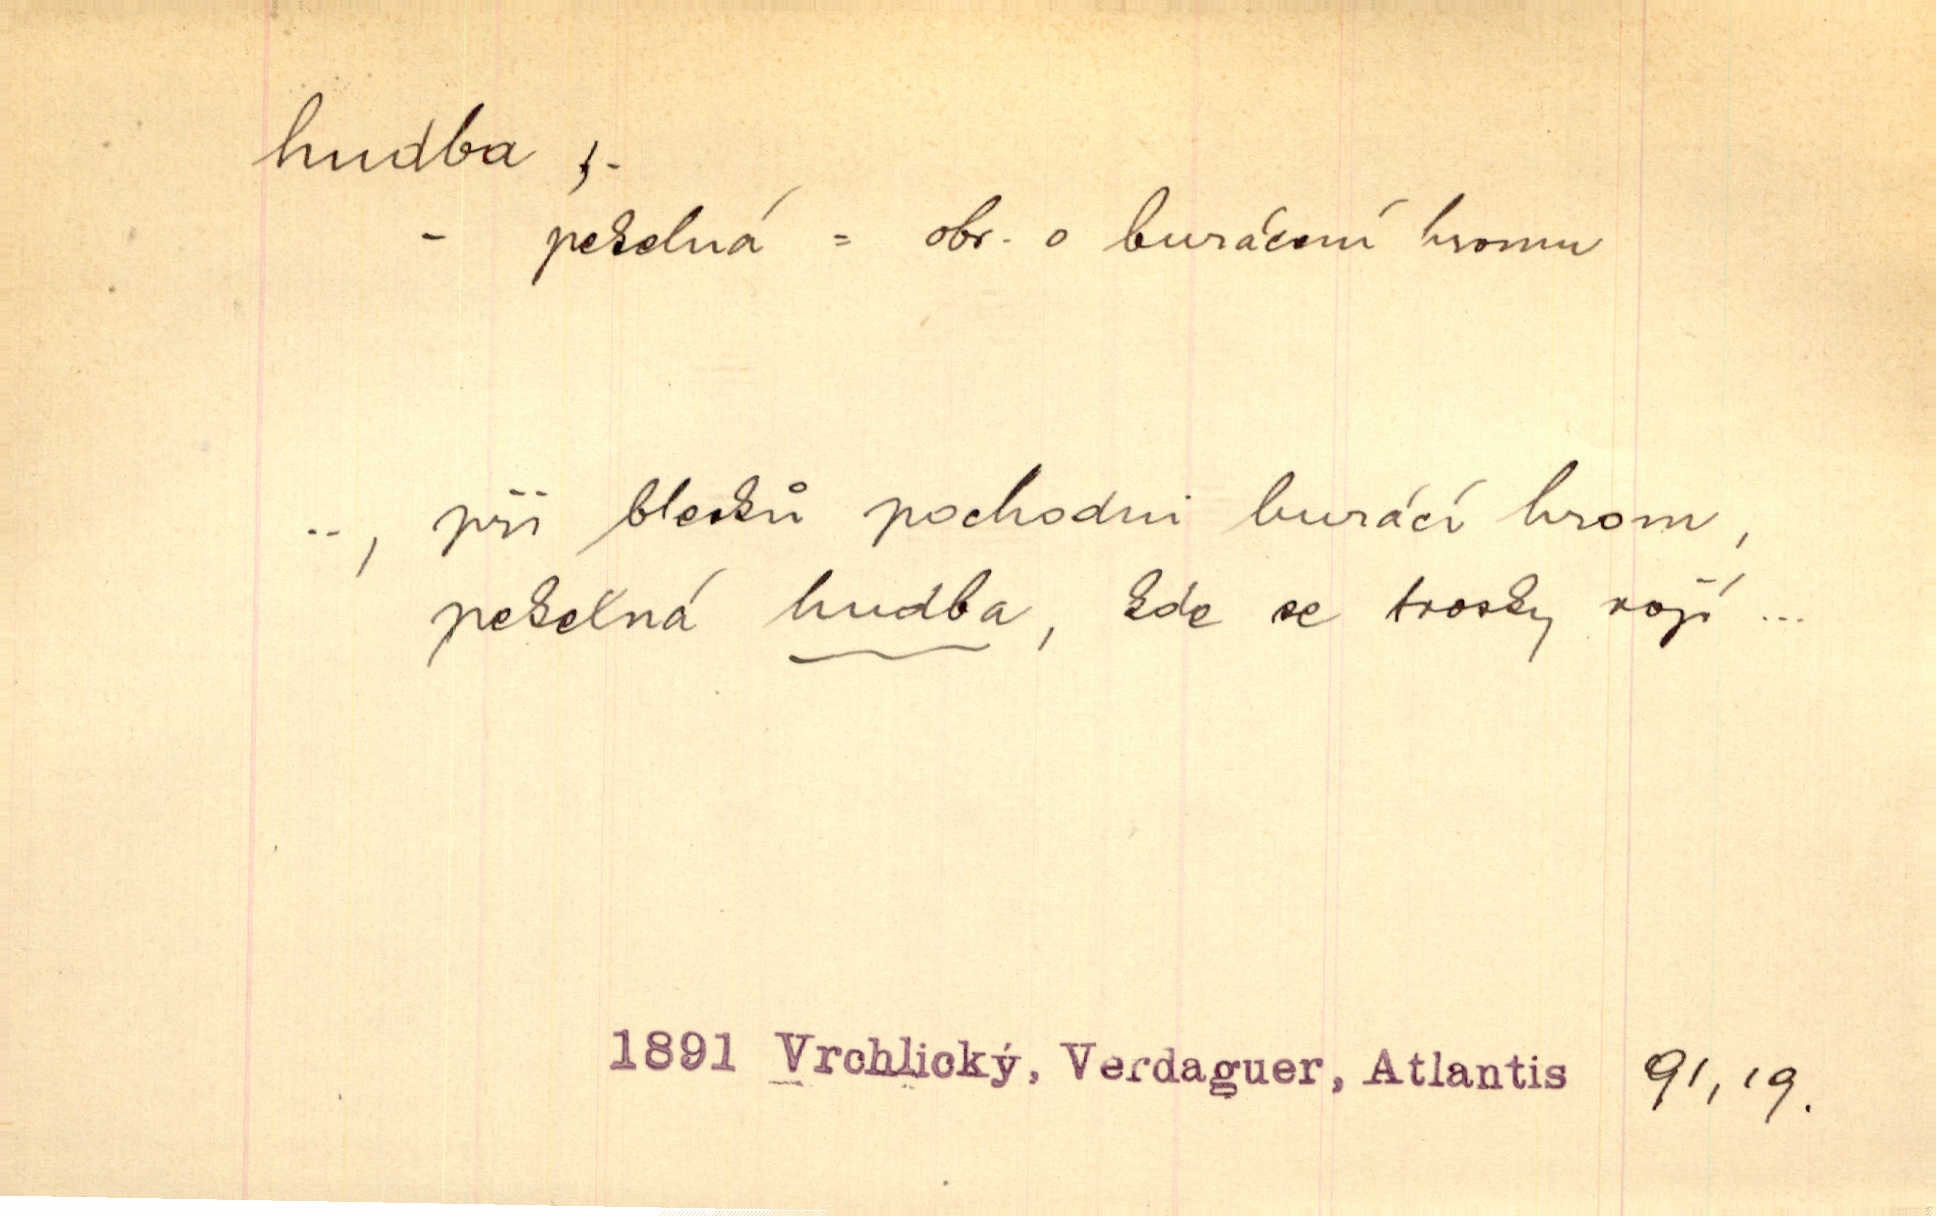 hudba, f.
- pekelná = obr. o burácení hromu
.., při blesků pochodni burácí hrom,
pekelná hudba, kde se trosky rojí ...
1891 Vrchlický, Verdaguer, Atlantis 91, 19.